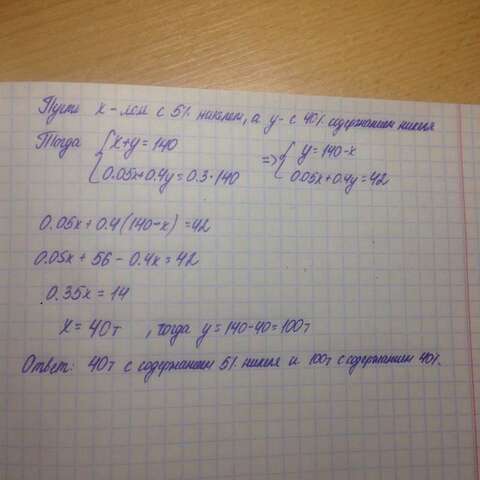 Пусть х - лом с 5% никелем, а у - с 40% содержанием никеля
Тогда { х+у = 140 => { у = 140-х
0.05х+0.4у = 0.3·140 0.05х+0.4у = 42
0.05х + 0.4(140-х) = 42
0.05х + 56 - 0.4х = 42
0.35х = 14
х = 40т , тогда у = 140-40 = 100т
Ответ: 40т с содержанием 5% никеля и 100т с содержанием 40%.